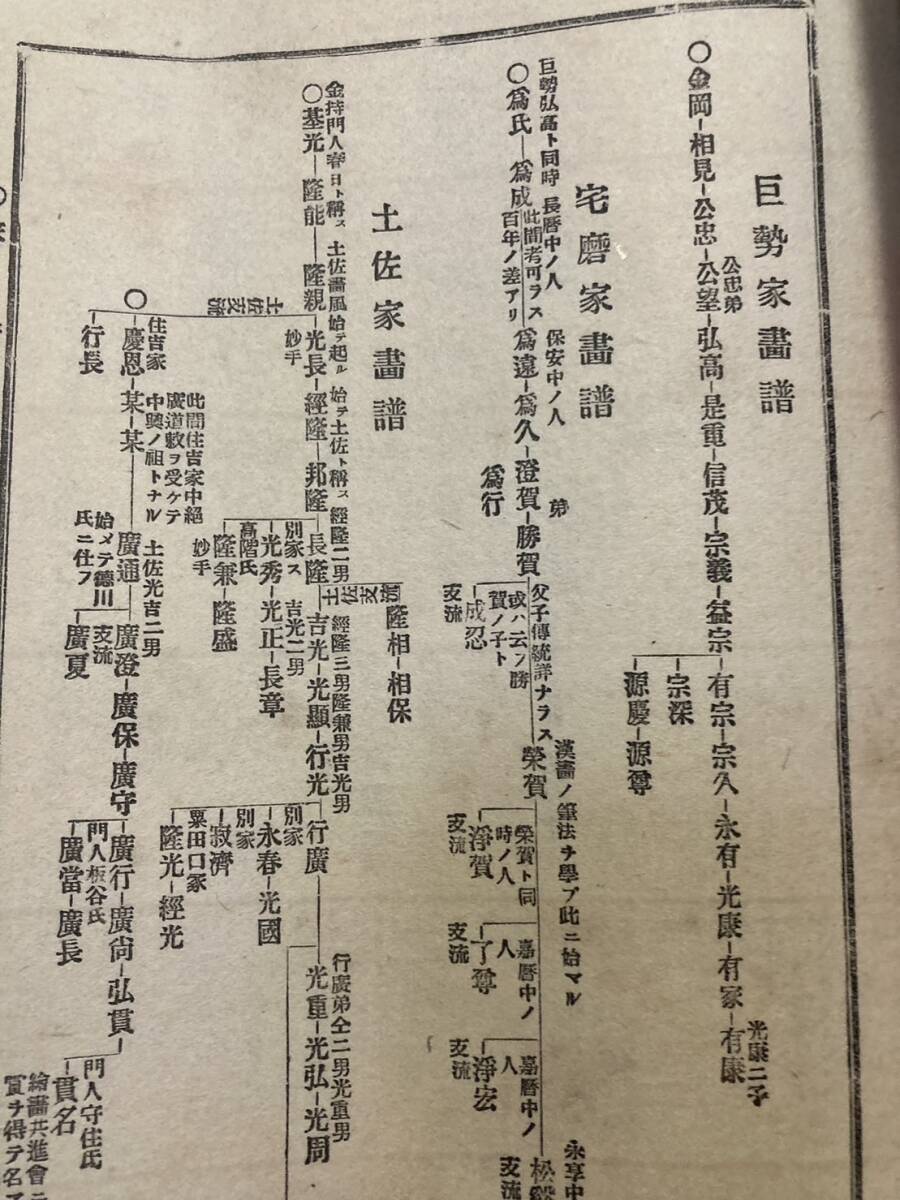 巨勢家畫譜
○金岡-相見-公忠-公望-弘高-是重-信茂-宗義-益宗-有宗-宗久-永有-光康-有家-有康
公忠弟
光康二子
宗深
源慶-源尊
宅磨家畫譜
巨勢弘高ト同時 長曆中ノ人
○爲氏-爲成
此間考可ラス
百年ノ差アリ
保安中ノ人
爲遠-爲久-澄賀-勝賀
弟
爲行
父子傳統詳ナラス
或ハ云フ勝
賀ノ子ト
成忍
支流
漢畫ノ筆法ヲ學ブ此ニ始マル
榮賀
榮賀ト同
時ノ人
淨賀
支流
嘉曆中ノ
人
了尊
支流
嘉曆中ノ
人
淨宏
支流
永享中
支流
土佐家畫譜
金持門人春日ト稱ス 土佐畫風始テ起ル 始テ土佐ト稱ス 經隆二男
○基光-隆能-隆親-光長-經隆-邦隆-長隆-吉光-光顯-行光-行廣-光重-光弘-光周
妙手
土佐支流
隆相-相保
經隆三男隆兼男吉光男
吉光二男
行廣弟仝二男光重男
別家ス
光秀-光正-長章
高階氏
隆兼-隆盛
妙手
別家
永春-光國
別家
寂濟
粟田口家
隆光-經光
土佐支流
○
住吉家
慶恩-某-某
行長
此間住吉家中絕
廣道敕ヲ受ケテ
中興ノ祖トナル
土佐光吉二男
廣通-廣澄-廣保-廣守-廣行-廣尙-弘貫
始メテ德川
氏ニ仕フ
支流
廣夏
門人板谷氏
廣當-廣長
門人守住氏
貫名
繪畫共進會ニ
賞ヲ得テ名